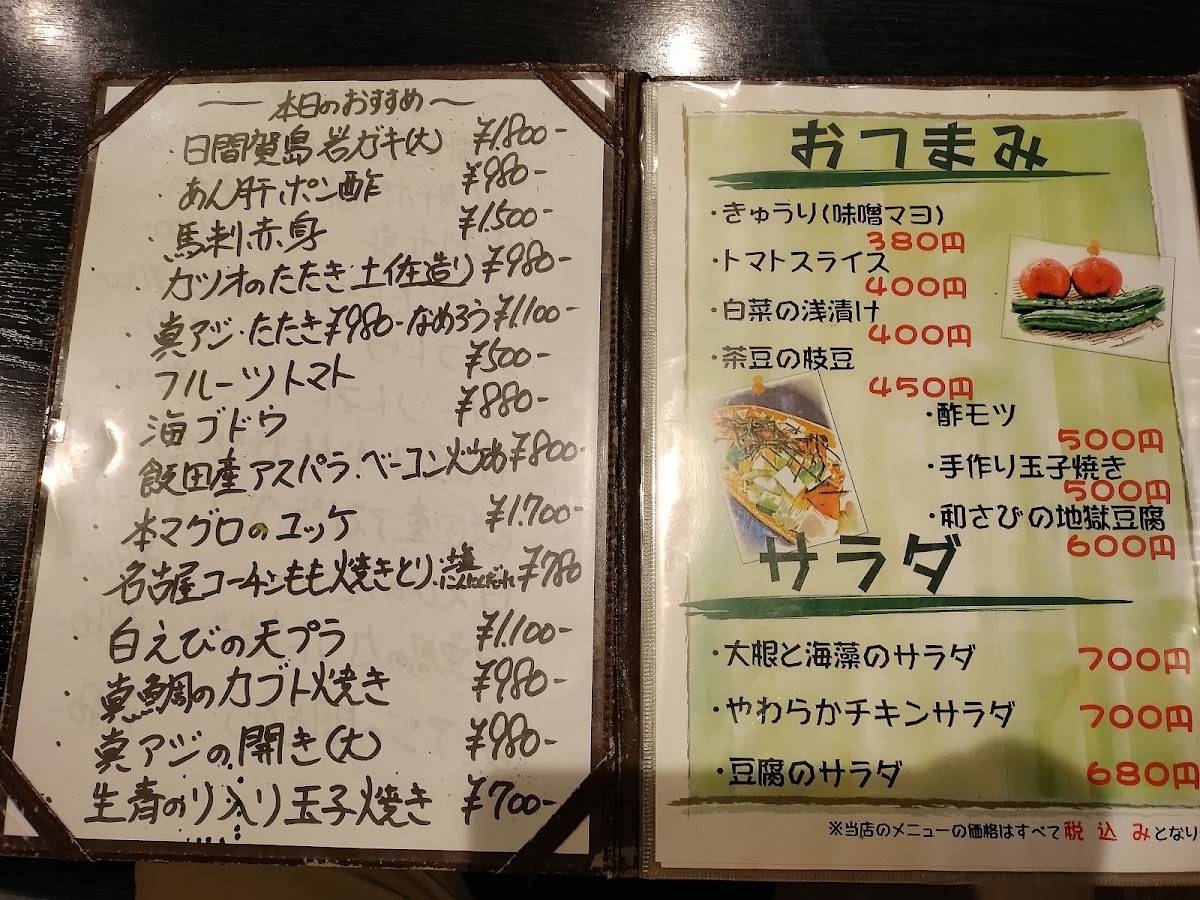 本日のおすすめ
・日間賀島岩ガキ(大) ¥1.800-
・あん肝ポン酢 ¥980-
・馬刺赤身 ¥1.500-
・カツオのたたき・土佐造り ¥980-
・真アジ・たたき¥980-なめろう¥1.100-
・フルーツトマト ¥500-
・海ブドウ ¥880-
・飯田産アスパラ・ベーコン炒め ¥800-
・本マグロのユッケ ¥1.700-
・名古屋コーチンもも焼きとり・塩 にんにくだれ ¥780
・白えびの天プラ ¥1.100-
・真鯛のカブト焼き ¥980-
真アジの開き(大) ¥980-
生青のり入り玉子焼き ¥700-
おつまみ
・きゅうり(味噌マヨ)
380円
・トマトスライス
400円
・白菜の浅漬け
400円
・茶豆の枝豆
450円
・酢モツ
500円
・手作り玉子焼き
500円
・和さびの地獄豆腐
600円
サラダ
・大根と海藻のサラダ 700円
・やわらかチキンサラダ 700円
・豆腐のサラダ 680円
※当店のメニューの価格はすべて税込みとなり